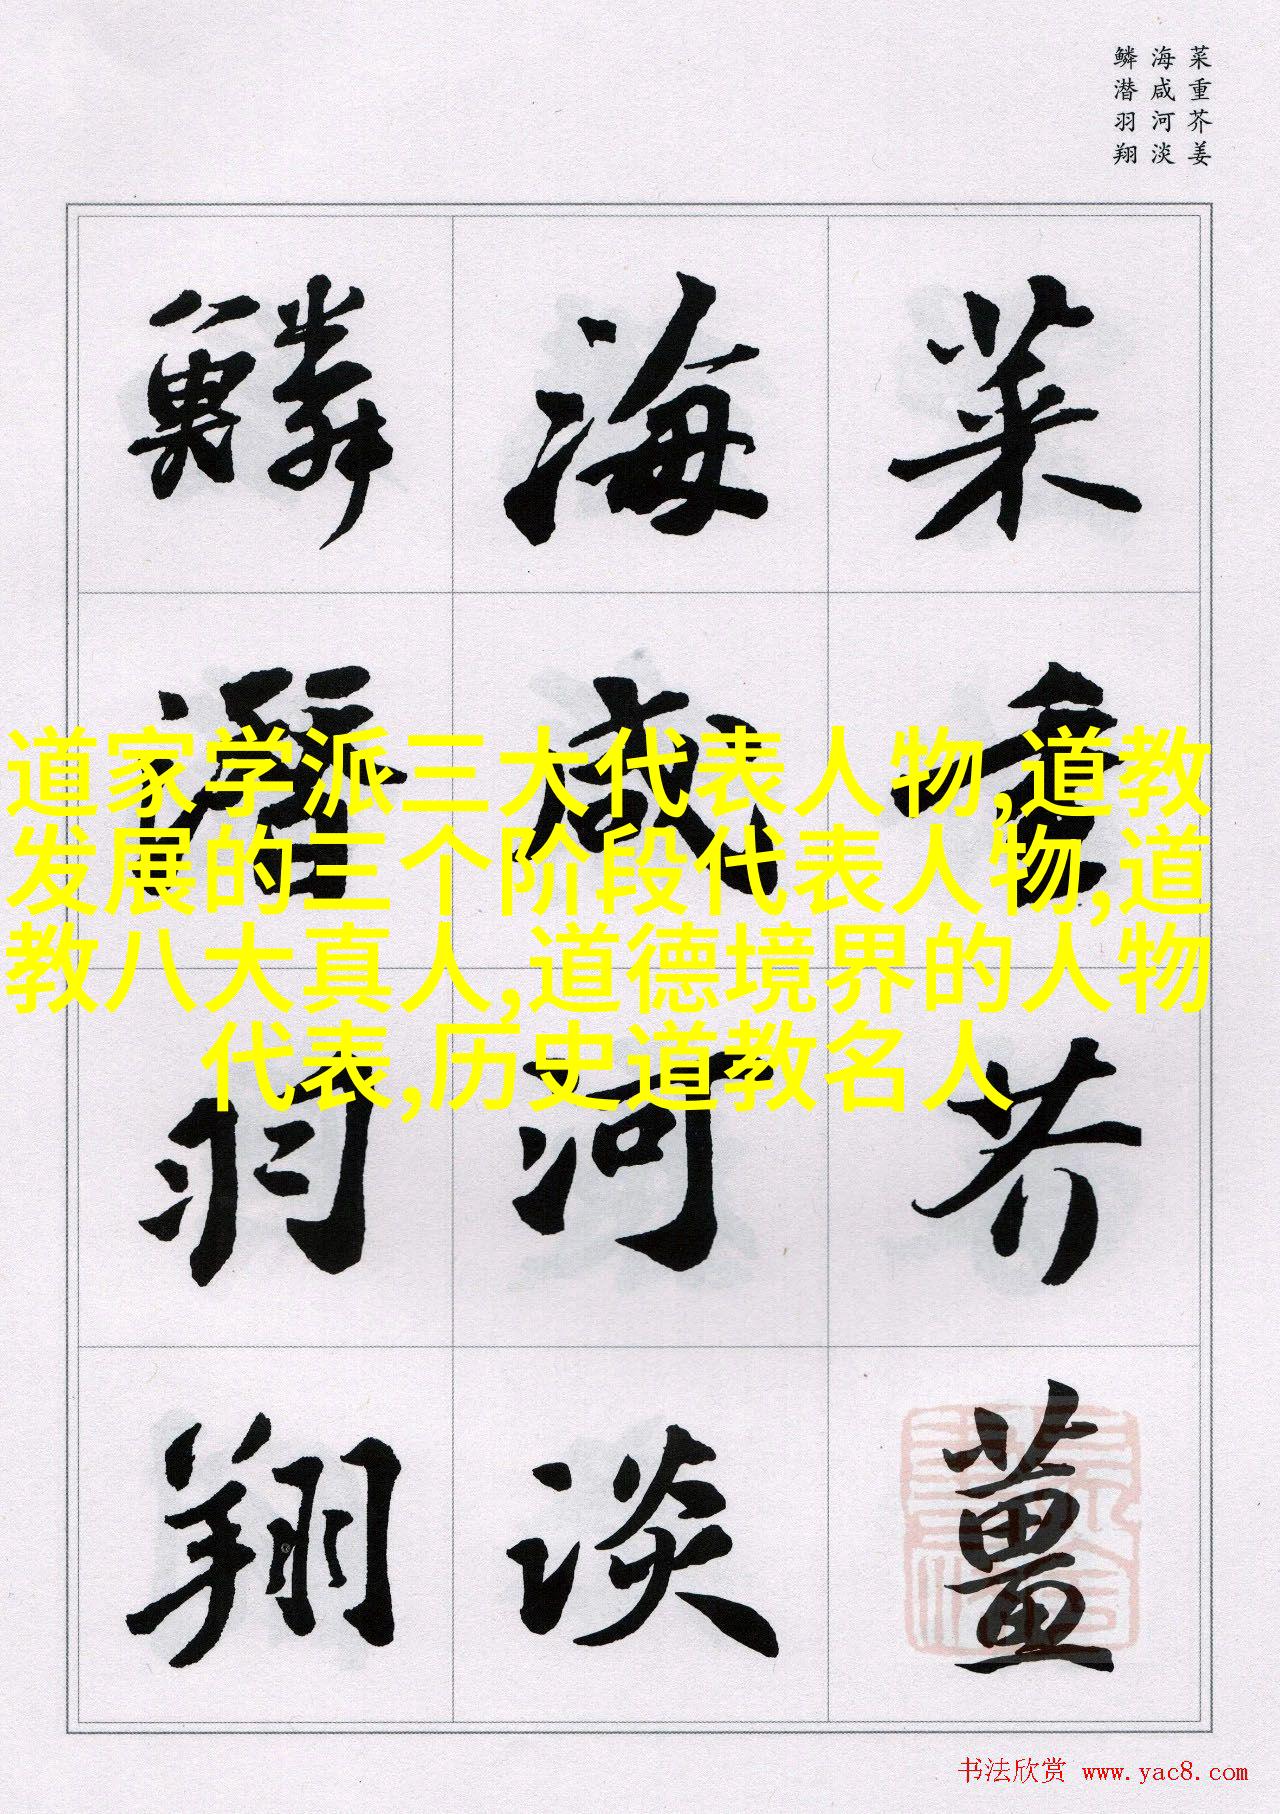 菜重芥姜
海咸河淡
鳞潜羽翔
菜重芥薑
海咸河淡
鱗潛羽翔
道家学派三大代表人物,道教
发展的三个阶段代表人物,道
教八大真人,道德境界的人物
代表,历史道教名人
书法欣赏 www.yac8.com